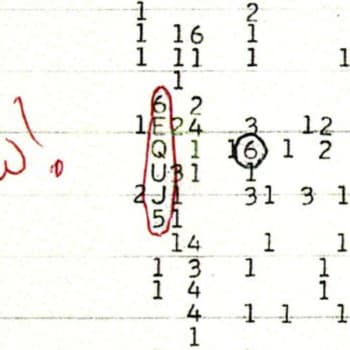 1 2
1 16 1
1 11 1 1
1
6 2
1 E 24 3 12
w! Q 1 1 6 1 2
U 31 1
2 J 1 31 3 1
5 1
14 1 1
1 3 1 1
1 4 1
4 1 1 1
1